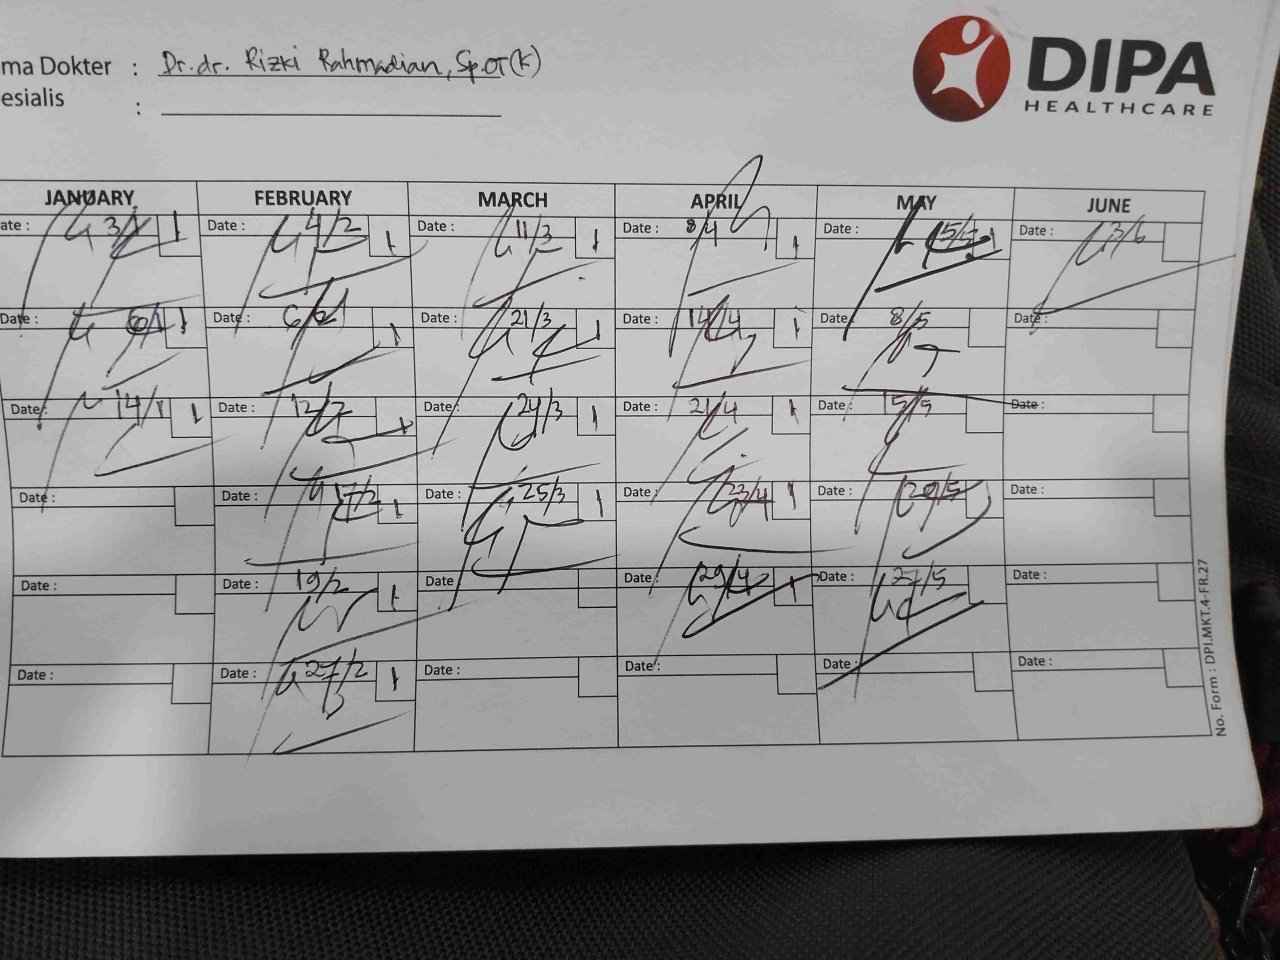 ma Dokter : Dr. dr. Rizki Rahmadian, Sp.OT(K)
esialis :
DIPA
HEALTHCARE
JANUARY FEBRUARY MARCH APRIL MAY JUNE
ate : 3/1 1 Date : 4/2 1 Date : 11/3 1 Date : 8/4 1 Date : 5/5 1 Date : 3/6
Date : 6/1 1 Date : 6/2 1 Date : 21/3 1 Date : 14/4 1 Date : 8/5 Date :
Date : 14/1 1 Date : 12/2 1 Date : 24/3 1 Date : 21/4 1 Date : 15/5 Date :
Date : Date : 17/2 1 Date : 25/3 1 Date : 23/4 1 Date : Date :
Date : Date : 19/2 1 Date Date : 29/4 1 Date : 27/5 Date :
Date : Date : 27/2 1 Date : Date : Date : Date :
No. Form : DPI.MKT.4-FR.27